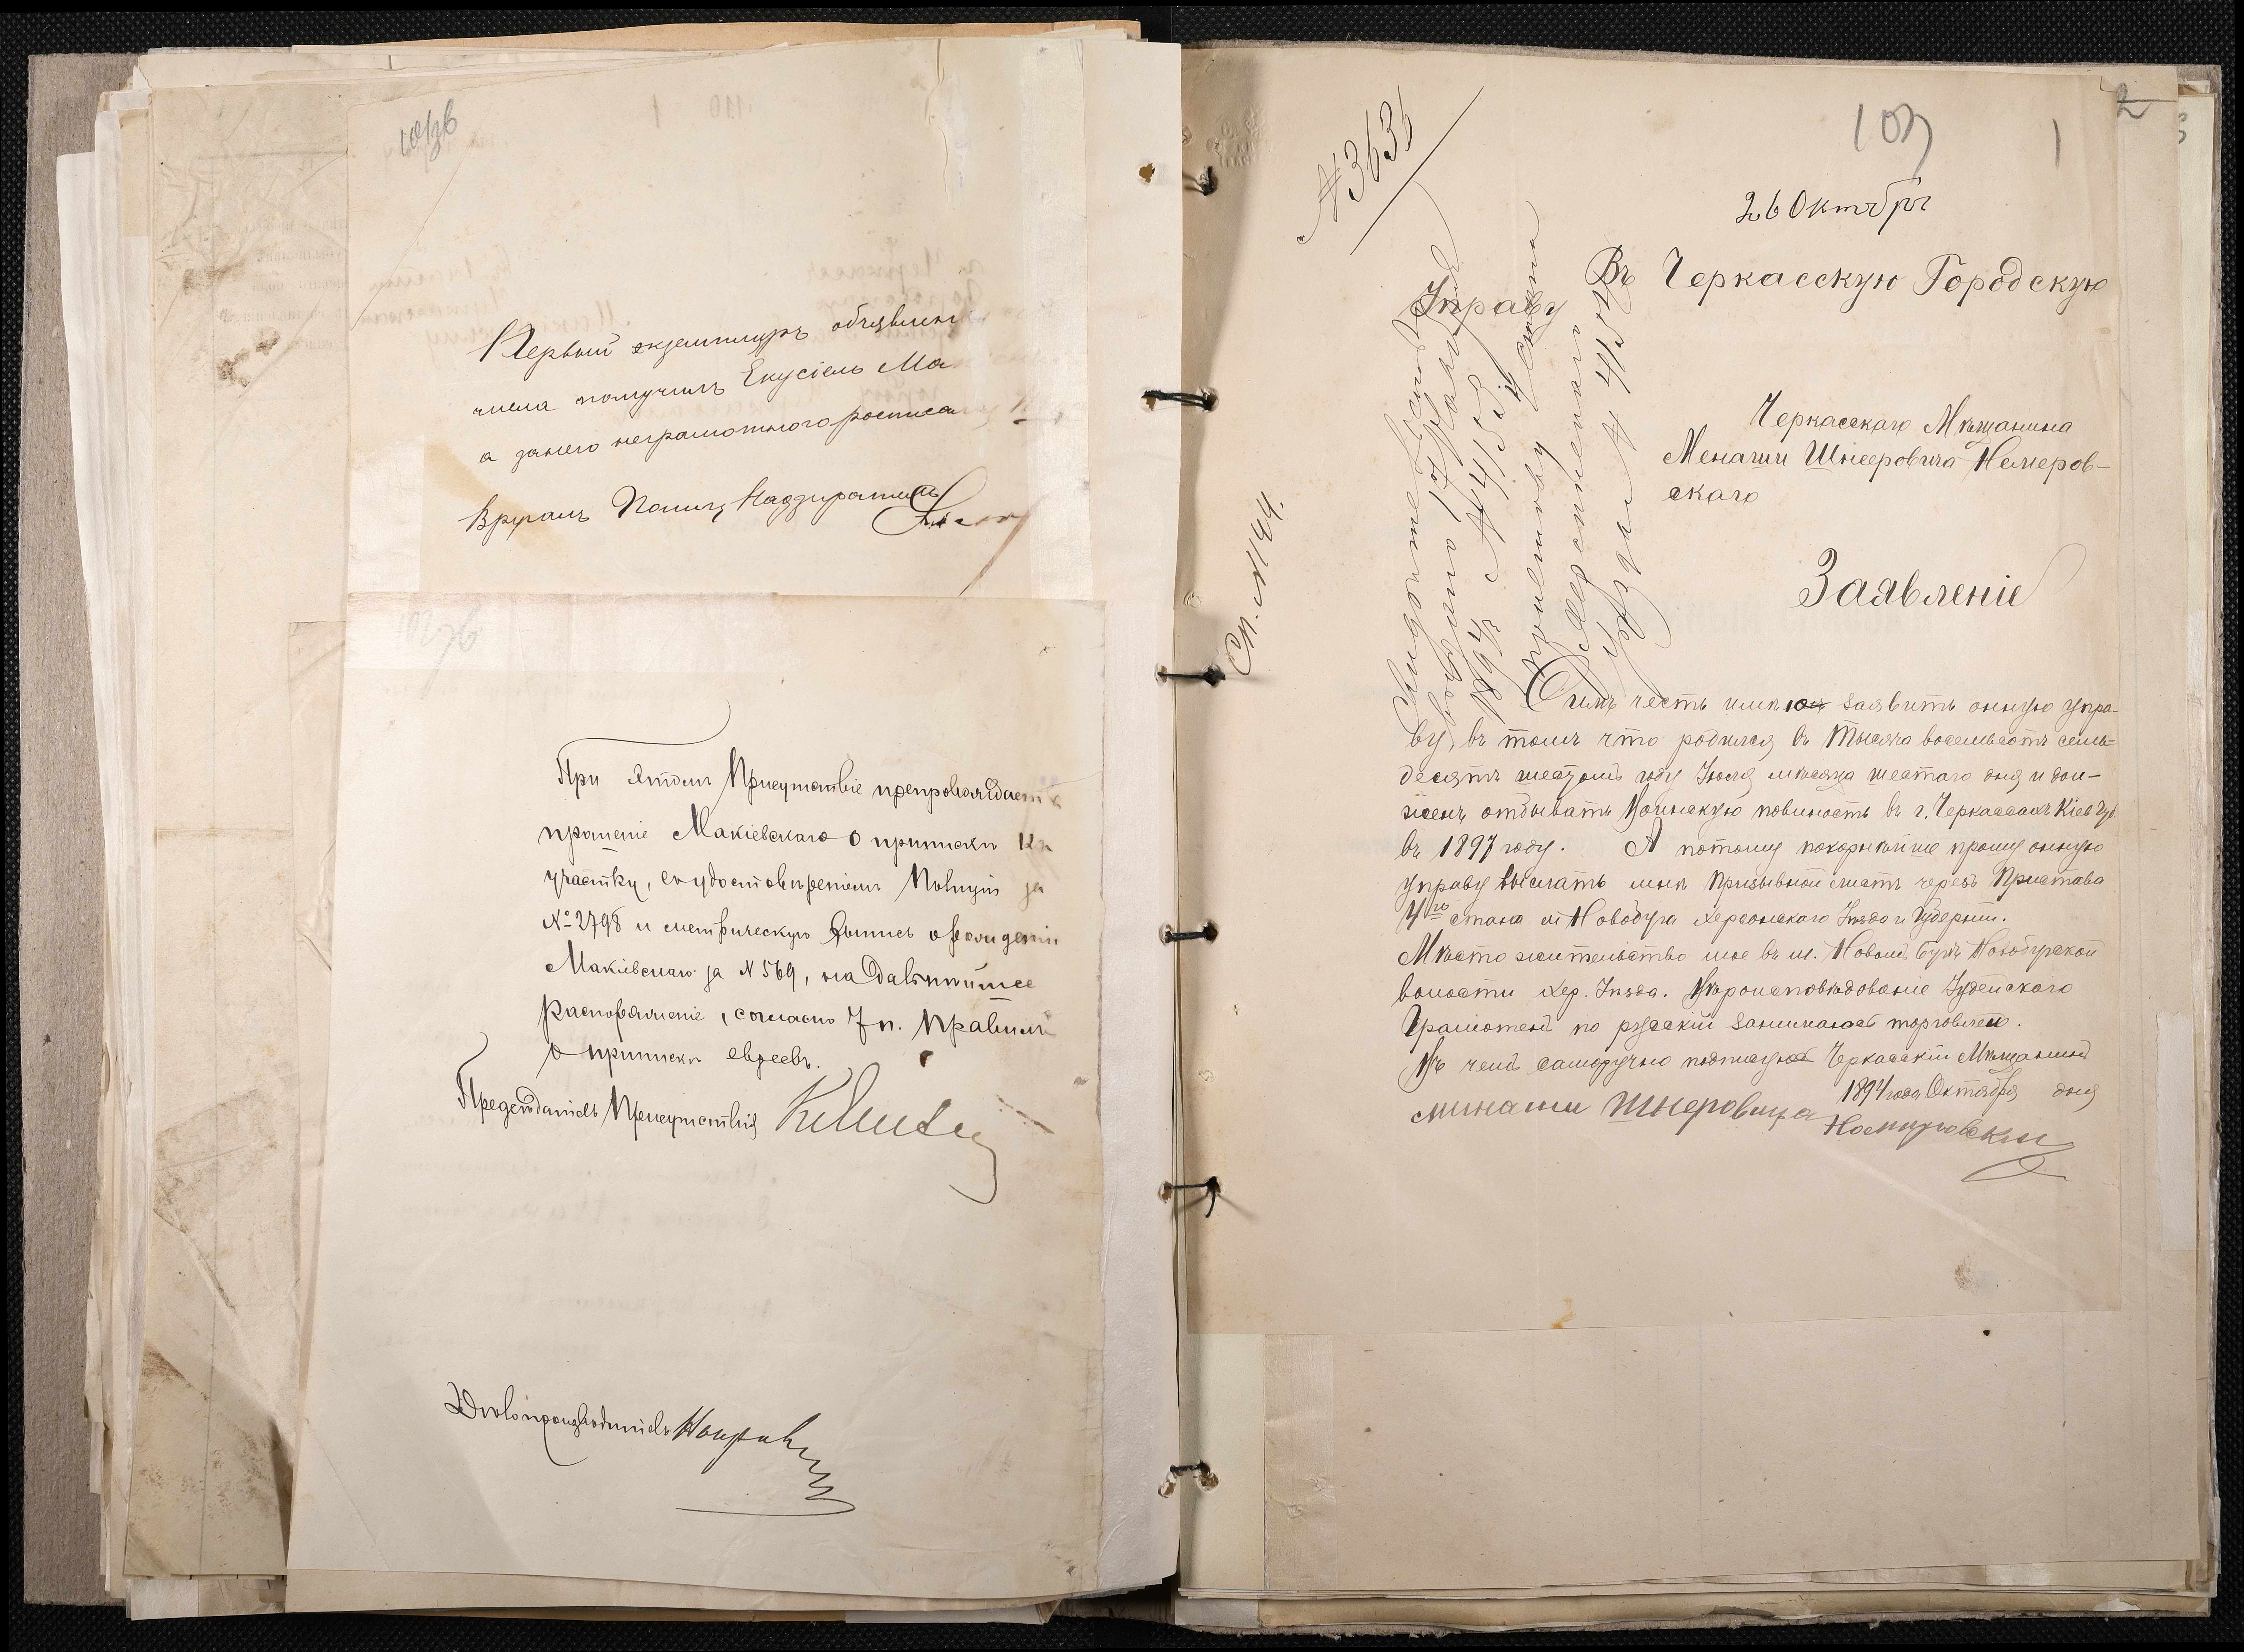 Первый экземпляръ объявлен
числа получилъ Екусіель Ма
а занего неграмотного росписа
Вручалъ Полиц Надзиратель
При этомъ Присутствіе препровождаетъ
прошеніе Макіевскаго о припискѣ къ
участку, съ удостовѣреніемъ Полиціи за
№ 2798 и метрическую выпись о рожденіи
Макіевскаго за № 569, на дальнѣйшее
распоряженіе, согласно 7 п. правилъ
о припискѣ евреевъ.
Предсѣдатель Присутствія
Дѣлопроизводитель
№ 3635
1
2
26 Октября
Въ Черкасскую Городскую
Управу
Черкасскаго Мѣщанина
Менаши Шнееровича Немеров-
скаго
Заявленіе
Сп. № 144.
1894 г. № 4155 и
приемному
Симъ честь имѣю заявить онную упра-
ву, въ томъ что родился въ Тысяча восемьсотъ семь-
десятъ шестомъ году Іюля мѣсяца шестаго дня и дол-
женъ отбывать Воинскую повиность въ г. Черкассахъ Кіев губ.
въ 1897 году. А потому покорнѣйше прошу онную
управу выслать мнѣ призывной листъ черезъ Пристава
4го стана м Новобуга Херсонскаго Уѣзда и Губерніи.
Мѣсто жительство мое въ м. Новомъ Бугѣ Новобугской
волости Хер. Уѣзда. Вѣроисповѣдованіе Іудейскаго
Грамотенъ по русскій занимаюсь торговлей.
Въ чемъ саморучно подписуюсь Черкасскій Мѣщанинъ
1894 года Октября дня
Минаши Шнеровица
Немировскии